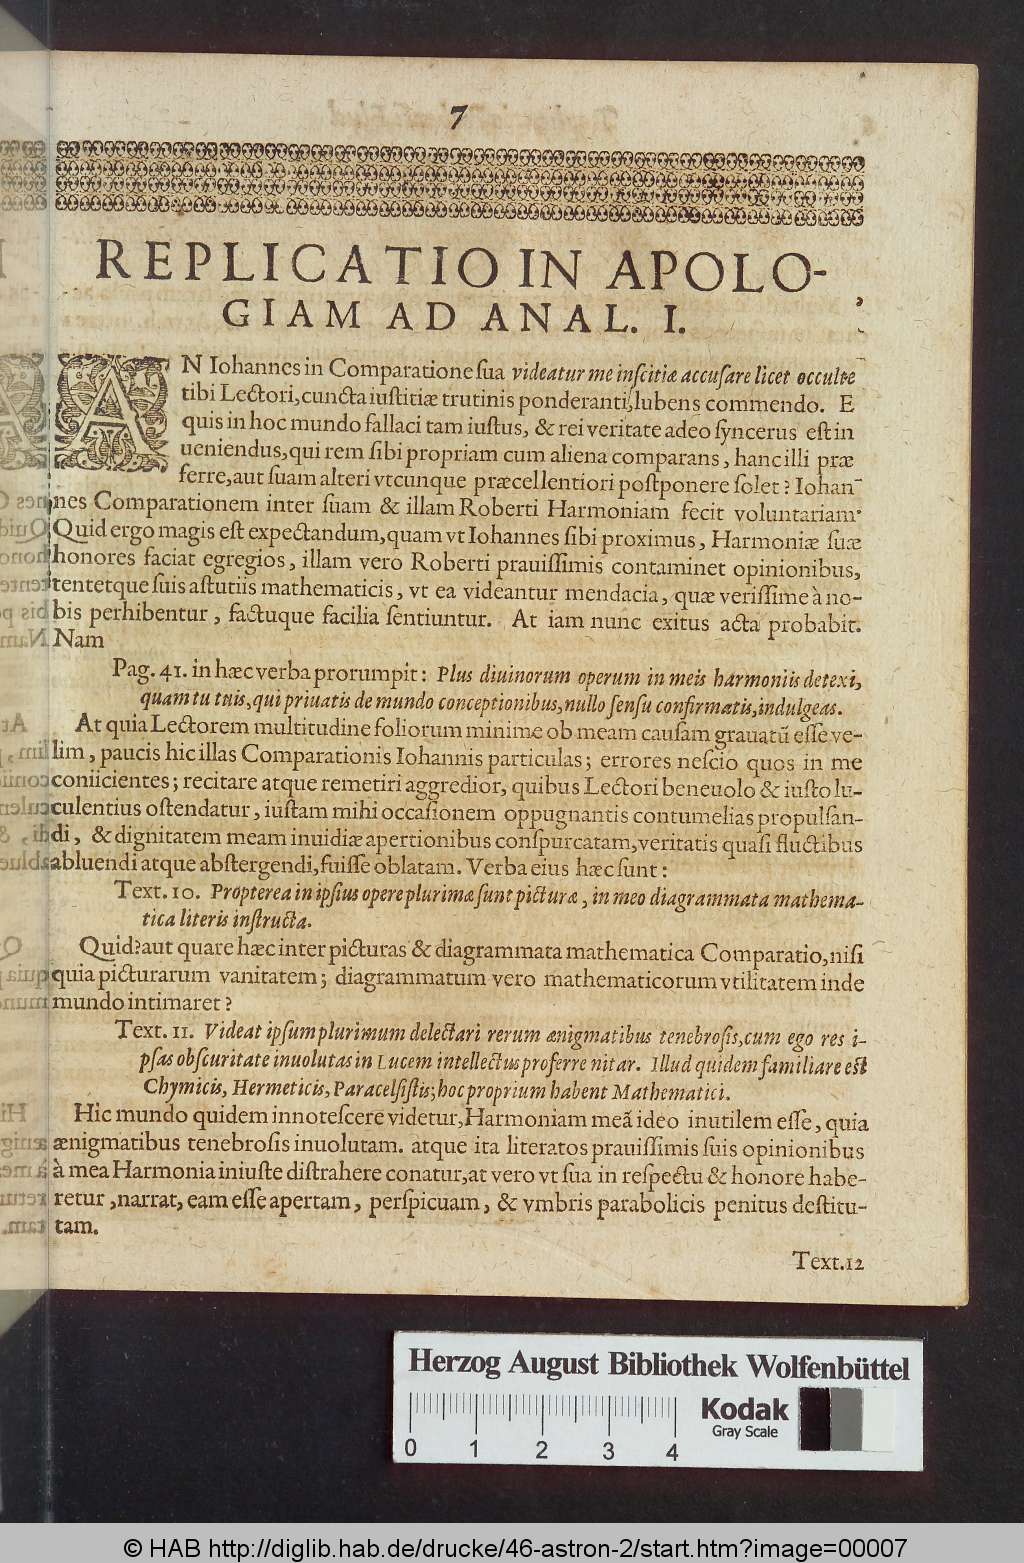 7
REPLICATIO IN APOLO-
GIAM AD ANAL. I.
AN Iohannes in Comparatione sua videatur me inscitiæ accusare licet occulte
tibi Lectori, cuncta iustitiæ trutinis ponderanti, lubens commendo. E
quis in hoc mundo fallaci tam iustus, & rei veritate adeo syncerus est in
ueniendus, qui rem sibi propriam cum aliena comparans, hanc illi præ
ferre, aut suam alteri vtcunque præcellentiori postponere solet? Iohan-
nes Comparationem inter suam & illam Roberti Harmoniam fecit voluntariam.
Quid ergo magis est expectandum, quam vt Iohannes sibi proximus, Harmoniæ suæ
honores faciat egregios, illam vero Roberti prauissimis contaminet opinionibus,
tentetque suis astutiis mathematicis, vt ea videantur mendacia, quæ verissime à no-
bis perhibentur, factuque facilia sentiuntur. At iam nunc exitus acta probabit.
Nam
Pag. 41. in hæc verba prorumpit: Plus diuinorum operum in meis harmoniis detexi,
quam tu tuis, qui priuatis de mundo conceptionibus, nullo sensu confirmatis, indulgeas.
At quia Lectorem multitudine foliorum minime ob meam causam grauatū esse ve-
lim, paucis hic illas Comparationis Iohannis particulas; errores nescio quos in me
coniicientes; recitare atque remetiri aggredior, quibus Lectori beneuolo & iusto lu-
culentius ostendatur, iustam mihi occasionem oppugnantis contumelias propulsan-
di, & dignitatem meam inuidiæ apertionibus conspurcatam, veritatis quasi fluctibus
abluendi atque abstergendi, fuisse oblatam. Verba eius hæc sunt:
Text. 10. Propterea in ipsius opere plurimæ sunt picturæ, in meo diagrammata mathema-
tica literis instructa.
Quid? aut quare hæc inter picturas & diagrammata mathematica Comparatio, nisi
quia picturarum vanitatem; diagrammatum vero mathematicorum vtilitatem inde
mundo intimaret?
Text. 11. Videat ipsum plurimum delectari rerum ænigmatibus tenebrosis, cum ego res i-
psas obscuritate inuolutas in Lucem intellectus proferre nitar. Illud quidem familiare est
Chymicis, Hermeticis, Paracelsistis; hoc proprium habent Mathematici.
Hic mundo quidem innotescere videtur, Harmoniam meā ideo inutilem esse, quia
ænigmatibus tenebrosis inuolutam. atque ita literatos prauissimis suis opinionibus
à mea Harmonia iniuste distrahere conatur, at vero vt sua in respectu & honore habe-
retur, narrat, eam esse apertam, perspicuam, & vmbris parabolicis penitus destitu-
tam.
Text. 12
Herzog August Bibliothek Wolfenbüttel
0 1 2 3 4
Kodak
Gray Scale
© HAB http://diglib.hab.de/drucke/46-astron-2/start.htm?image=00007